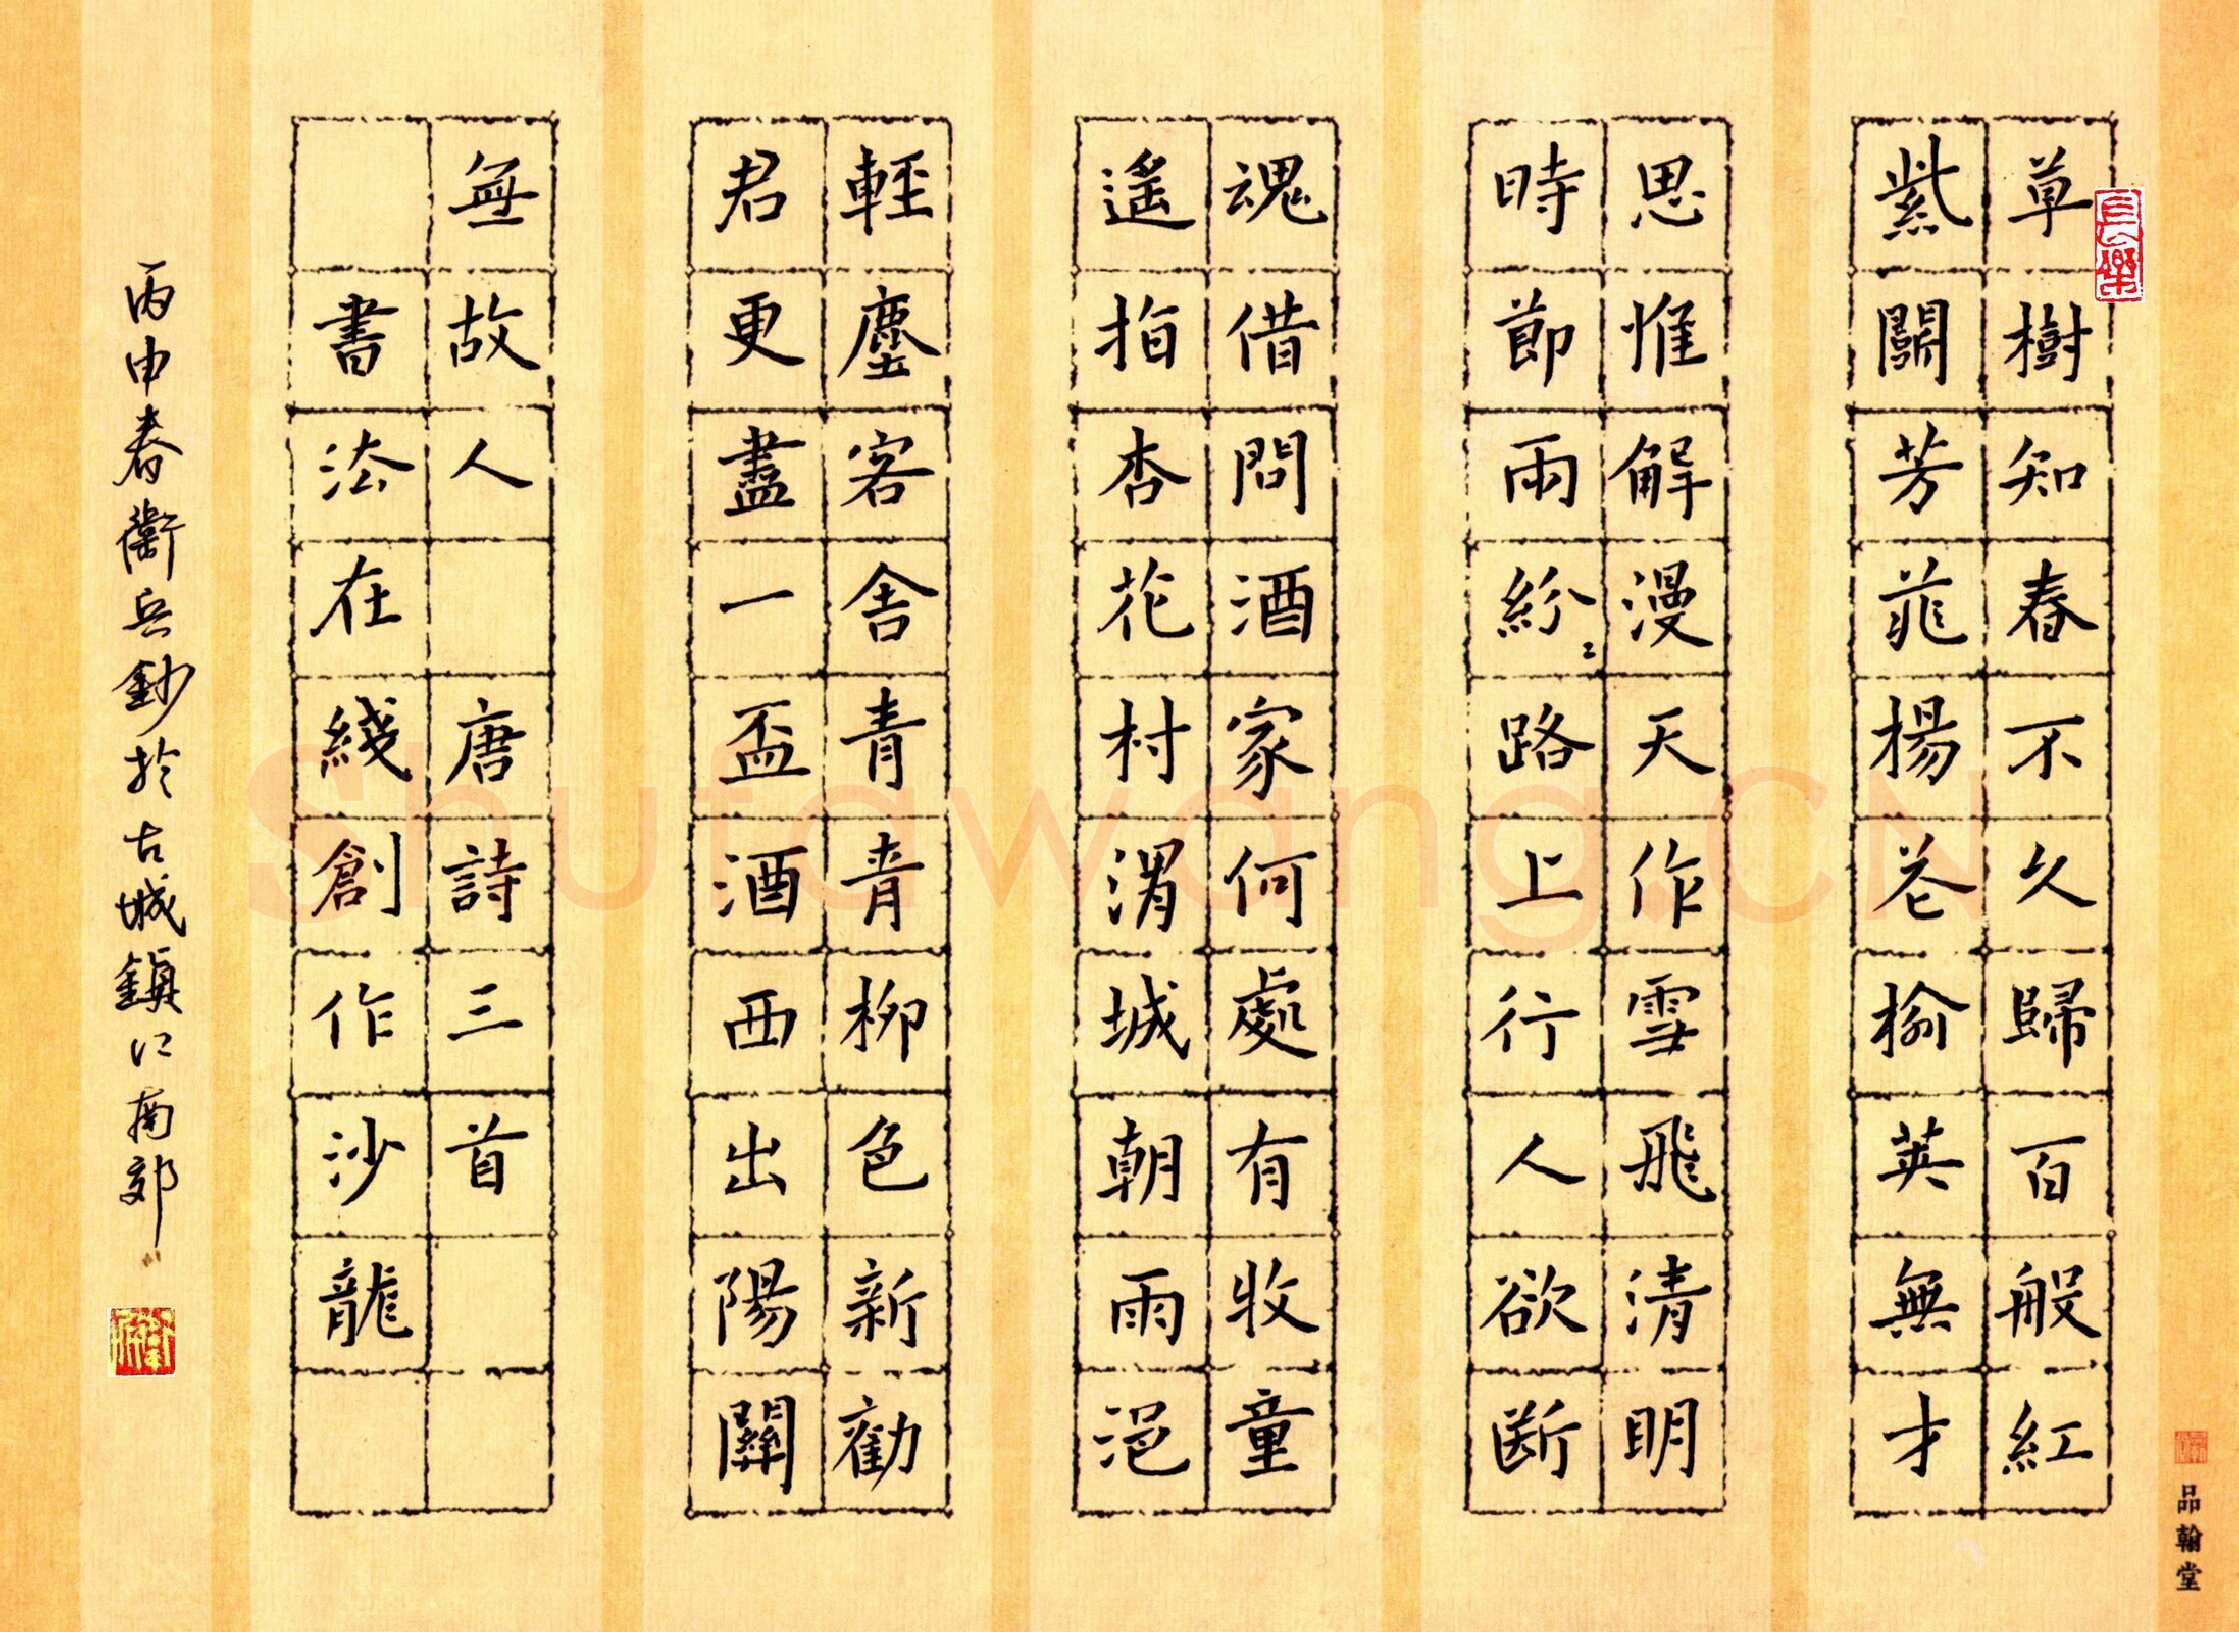 草樹知春不久歸百般紅
紫鬭芳菲楊花榆莢無才
思惟解漫天作雪飛清明
時節雨紛〻路上行人欲断
魂借問酒家何處有牧童
遙指杏花村渭城朝雨浥
輕塵客舍青青柳色新勸
君更盡一盃酒西出陽關
無故人 唐詩三首
書法在綫創作沙龍
丙申春衛兵鈔於古城鎮江南郊
長樂
品翰堂
Shufawang.CN